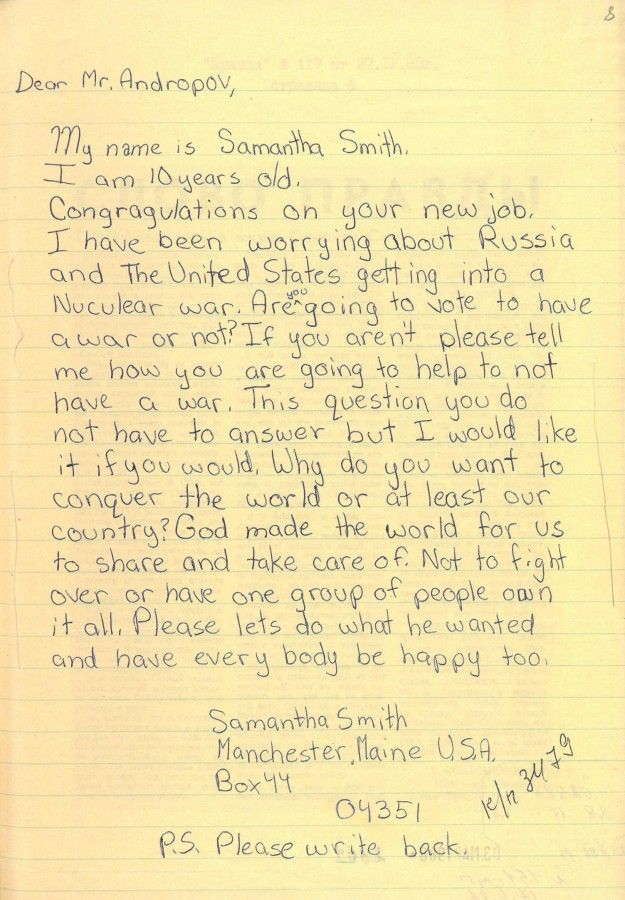 8
"Правда" № 117 от 27.IV.83г.
страница 4
Dear Mr. Andropov,
My name is Samantha Smith.
I am 10 years old.
Congragulations on your new job.
I have been worrying about Russia
and The United States getting into a
Nuculear war. Are you going to vote to have
a war or not? If you aren't please tell
me how you are going to help to not
have a war. This question you do
not have to answer but I would like
it if you would. Why do you want to
conquer the world or at least our
country? God made the world for us
to share and take care of. Not to fight
over or have one group of people own
it all. Please lets do what he wanted
and have every body be happy too.
Samantha Smith
Manchester, Maine U.S.A.
Box 44
04351
3479
P.S. Please write back.